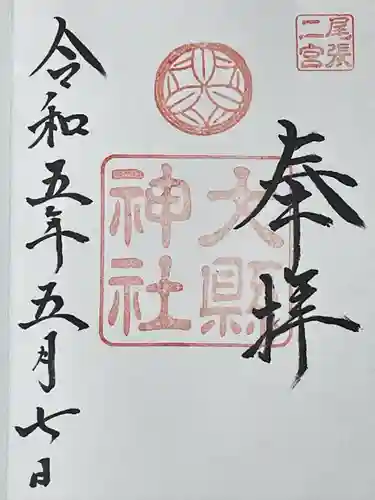 尾張
二宮
奉拝
大縣
神社
令和五年五月七日